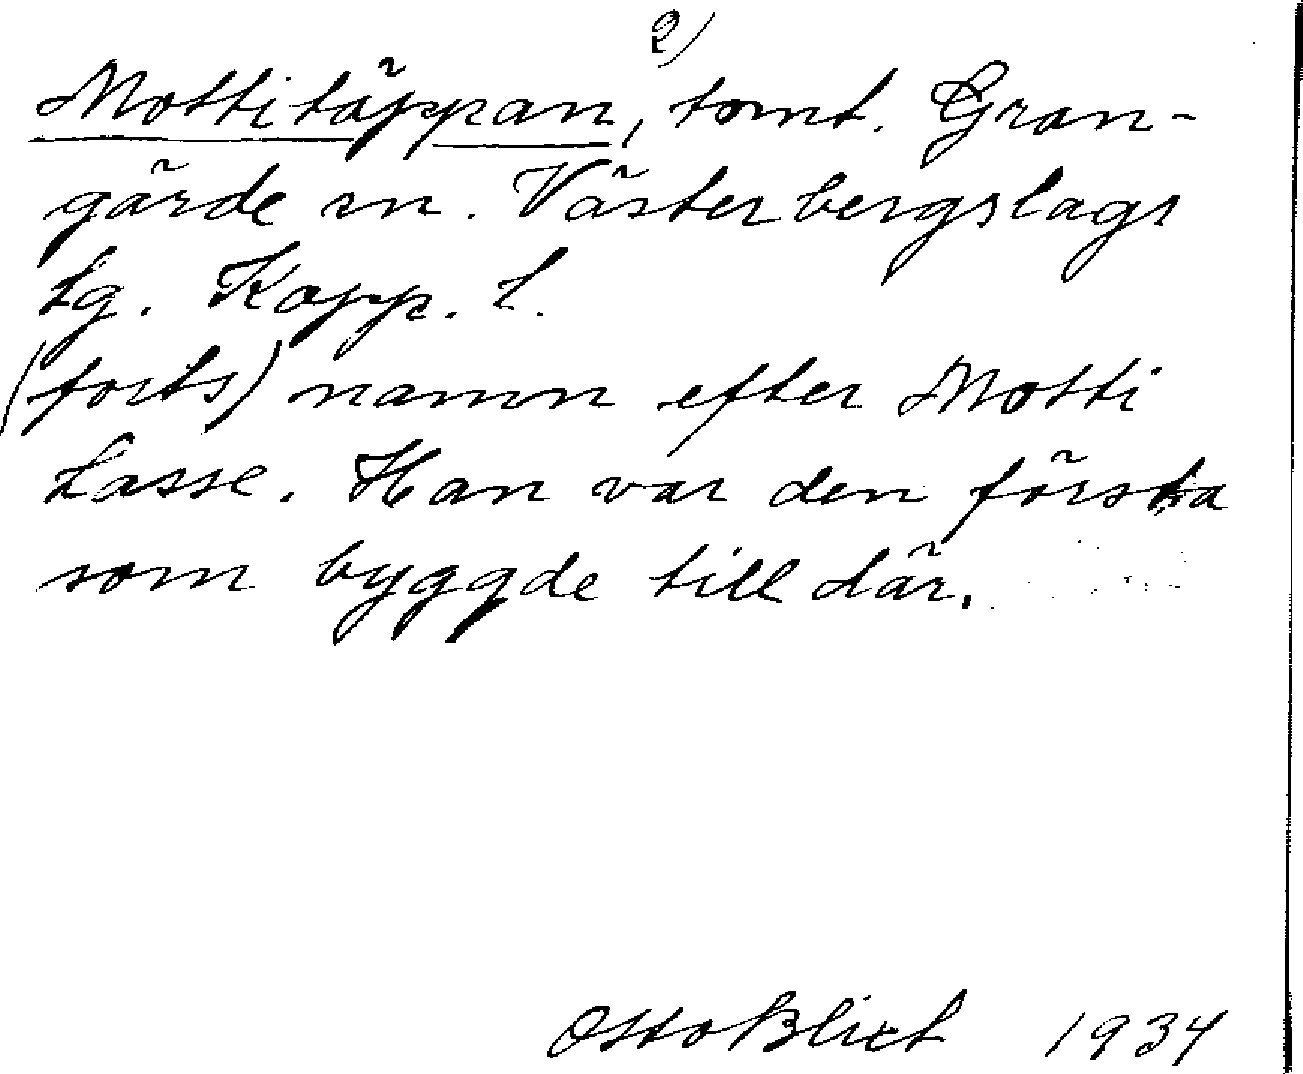 2)
Mottitäppan, tomt. Gran-
gärde sn. Västerbergslags
Lg. Kopp. L.
(forts) namn efter Motti
Lasse. Han var den första
som byggde till där.
Otto Blixt 1934